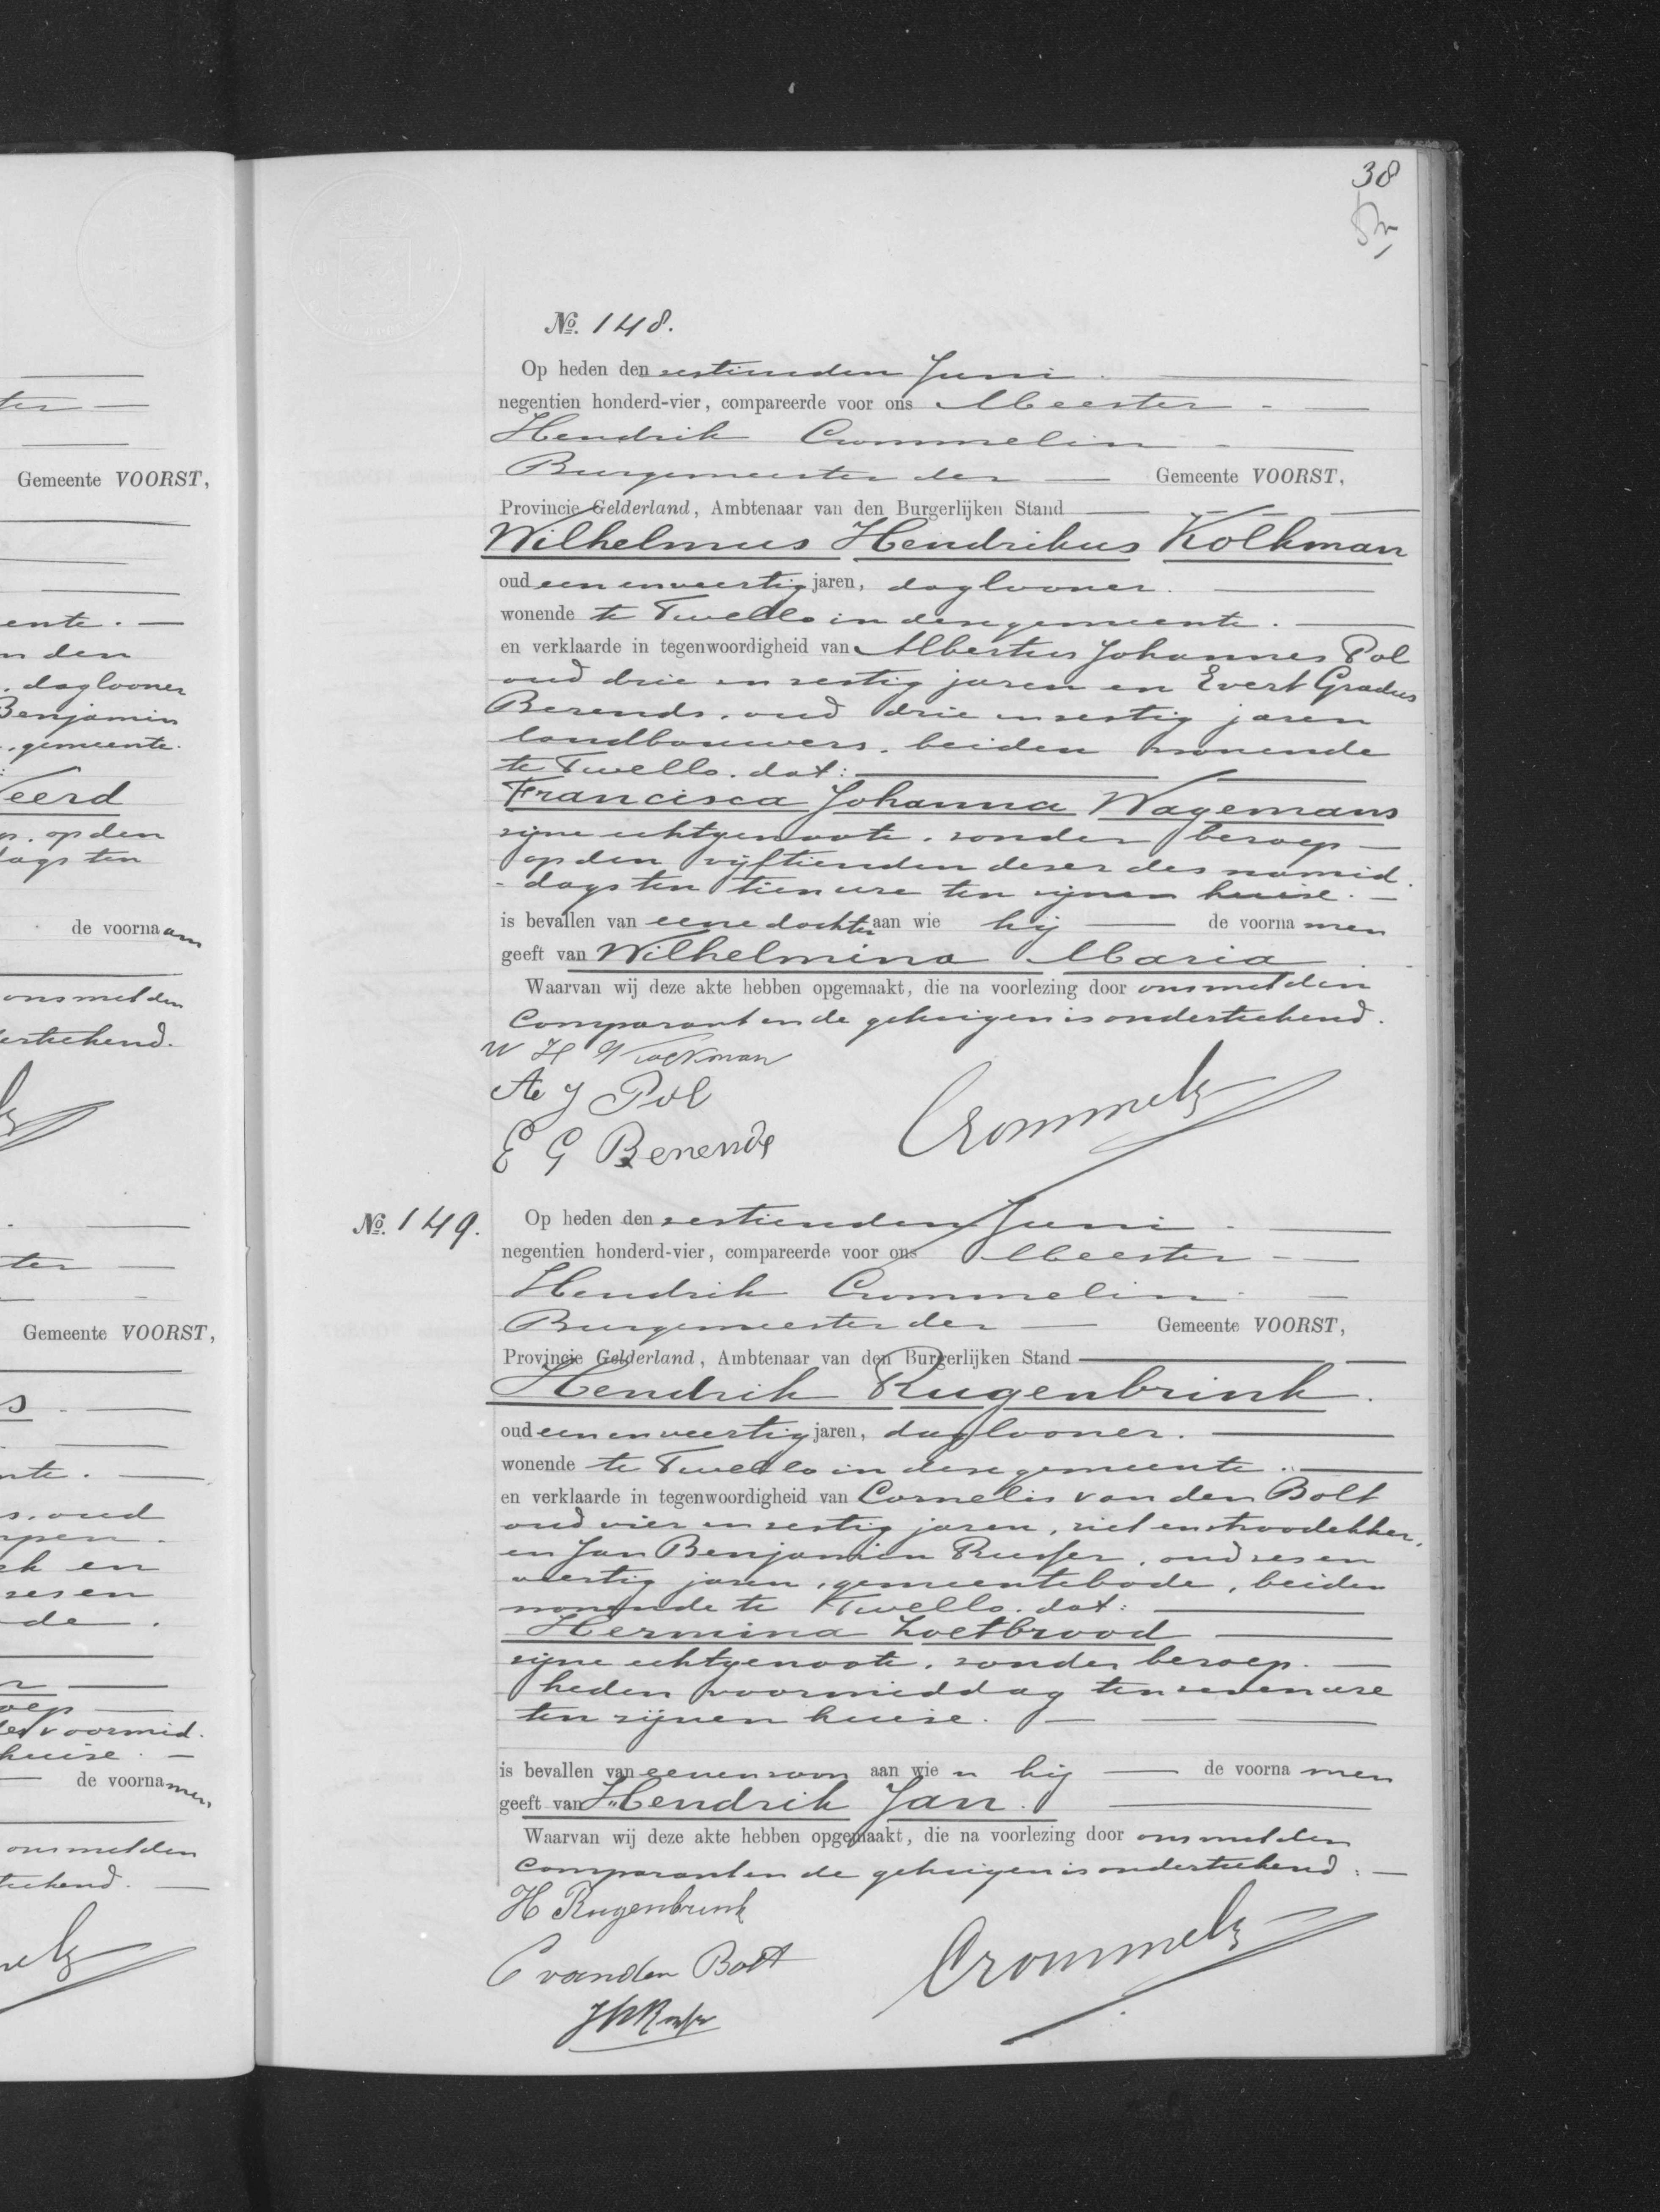 38
Gemeente VOORST,
ente.
den
daglooner
Benjamin
gemeente.
eerd
op den
de voornaam
ons met den
Gemeente VOORST,
oud
en
de.
voormid.
huise.
de voornamen
ons met den
No. 148.
Op heden den zestienden Juni
negentien honderd-vier, compareerde voor ons Meester
Hendrik Crommelin
Burgemeester der Gemeente VOORST,
Provincie Gelderland, Ambtenaar van den Burgerlijken Stand
Wilhelmus Hendrikus Kolkman
oud een en veertig jaren, daglooner.
wonende te Twello in deze gemeente.
en verklaarde in tegenwoordigheid van Albertus Johannes Pol
oud drie en zestig jaren en Evert Gradus
Berends, oud drie en zestig jaren
landbouwers, beiden wonende
te Twello, dat:
Francisca Johanna Wagemans
zijne echtgenoote, zonder beroep
op den vijftienden dezer des namid
dags ten tien ure ten zijnen huize.
is bevallen van eene dochter aan wie hij de voornamen
geeft van Wilhelmina Maria
Waarvan wij deze akte hebben opgemaakt, die na voorlezing door ons met den
Comparant en de getuigen is onderteekend.
W H Kolkman
A J Pol
E G Berends
Crommelin
No. 149.
Op heden den zestienden Juni
negentien honderd-vier, compareerde voor ons Meester
Hendrik Crommelin
Burgemeester der Gemeente VOORST,
Provincie Gelderland, Ambtenaar van den Burgerlijken Stand
Hendrik Rugenbrink.
oud een en veertig jaren, daglooner.
wonende te Twello in deze gemeente.
en verklaarde in tegenwoordigheid van Cornelis van den Bolt
oud vier en zestig jaren, riet en stroodekker,
en Jan Benjamin Russer, oud zes en
veertig jaren, gemeentebode, beiden
wonende te Twello, dat:
Hermina Zoetbrood
zijne echtgenoote, zonder beroep.
heden voormiddag ten zeven ure
ten zijnen huize.
is bevallen van eenen zoon aan wien hij de voornamen
geeft van Hendrik Jan.
Waarvan wij deze akte hebben opgemaakt, die na voorlezing door ons met den
Comparant en de getuigen is onderteekend.
H Rugenbrink
C van den Bolt
Crommelin